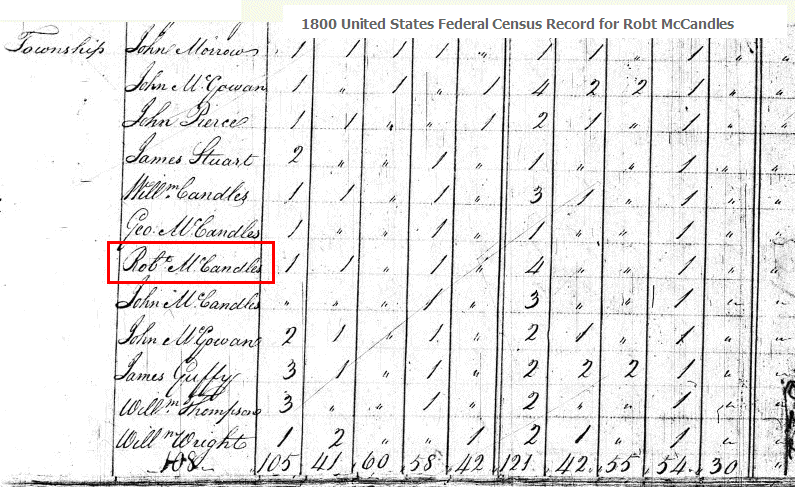 1800 United States Federal Census Record for Robt McCandles
Township John Morrow 1 1 1 1 " 1 1 " 1 " "
John McGowan 1 " 1 " 1 4 2 2 1 " "
John Pierce 1 1 " " 1 2 1 " 1 " "
James Stuart 2 " " 1 " 1 " " 1 " "
Willm Candles 1 1 " 1 " 3 1 " 1 " "
Geo. McCandles 1 " " 1 " 1 " " 1 " "
Robt McCandles 1 1 " 1 " 4 " " 1 " "
John McCandles " " " 1 " 3 " " 1 " "
John McGowan 2 1 " 1 " 2 1 " 1 " "
James Guffy 3 1 " 1 " 2 2 2 1 " "
Willm Thompson 3 " " 1 " 2 " " 1 " "
Willm Wright 1 2 " " 1 2 1 " 1 " "
108 105 41 60 58 42 121 42 55 54 30 "